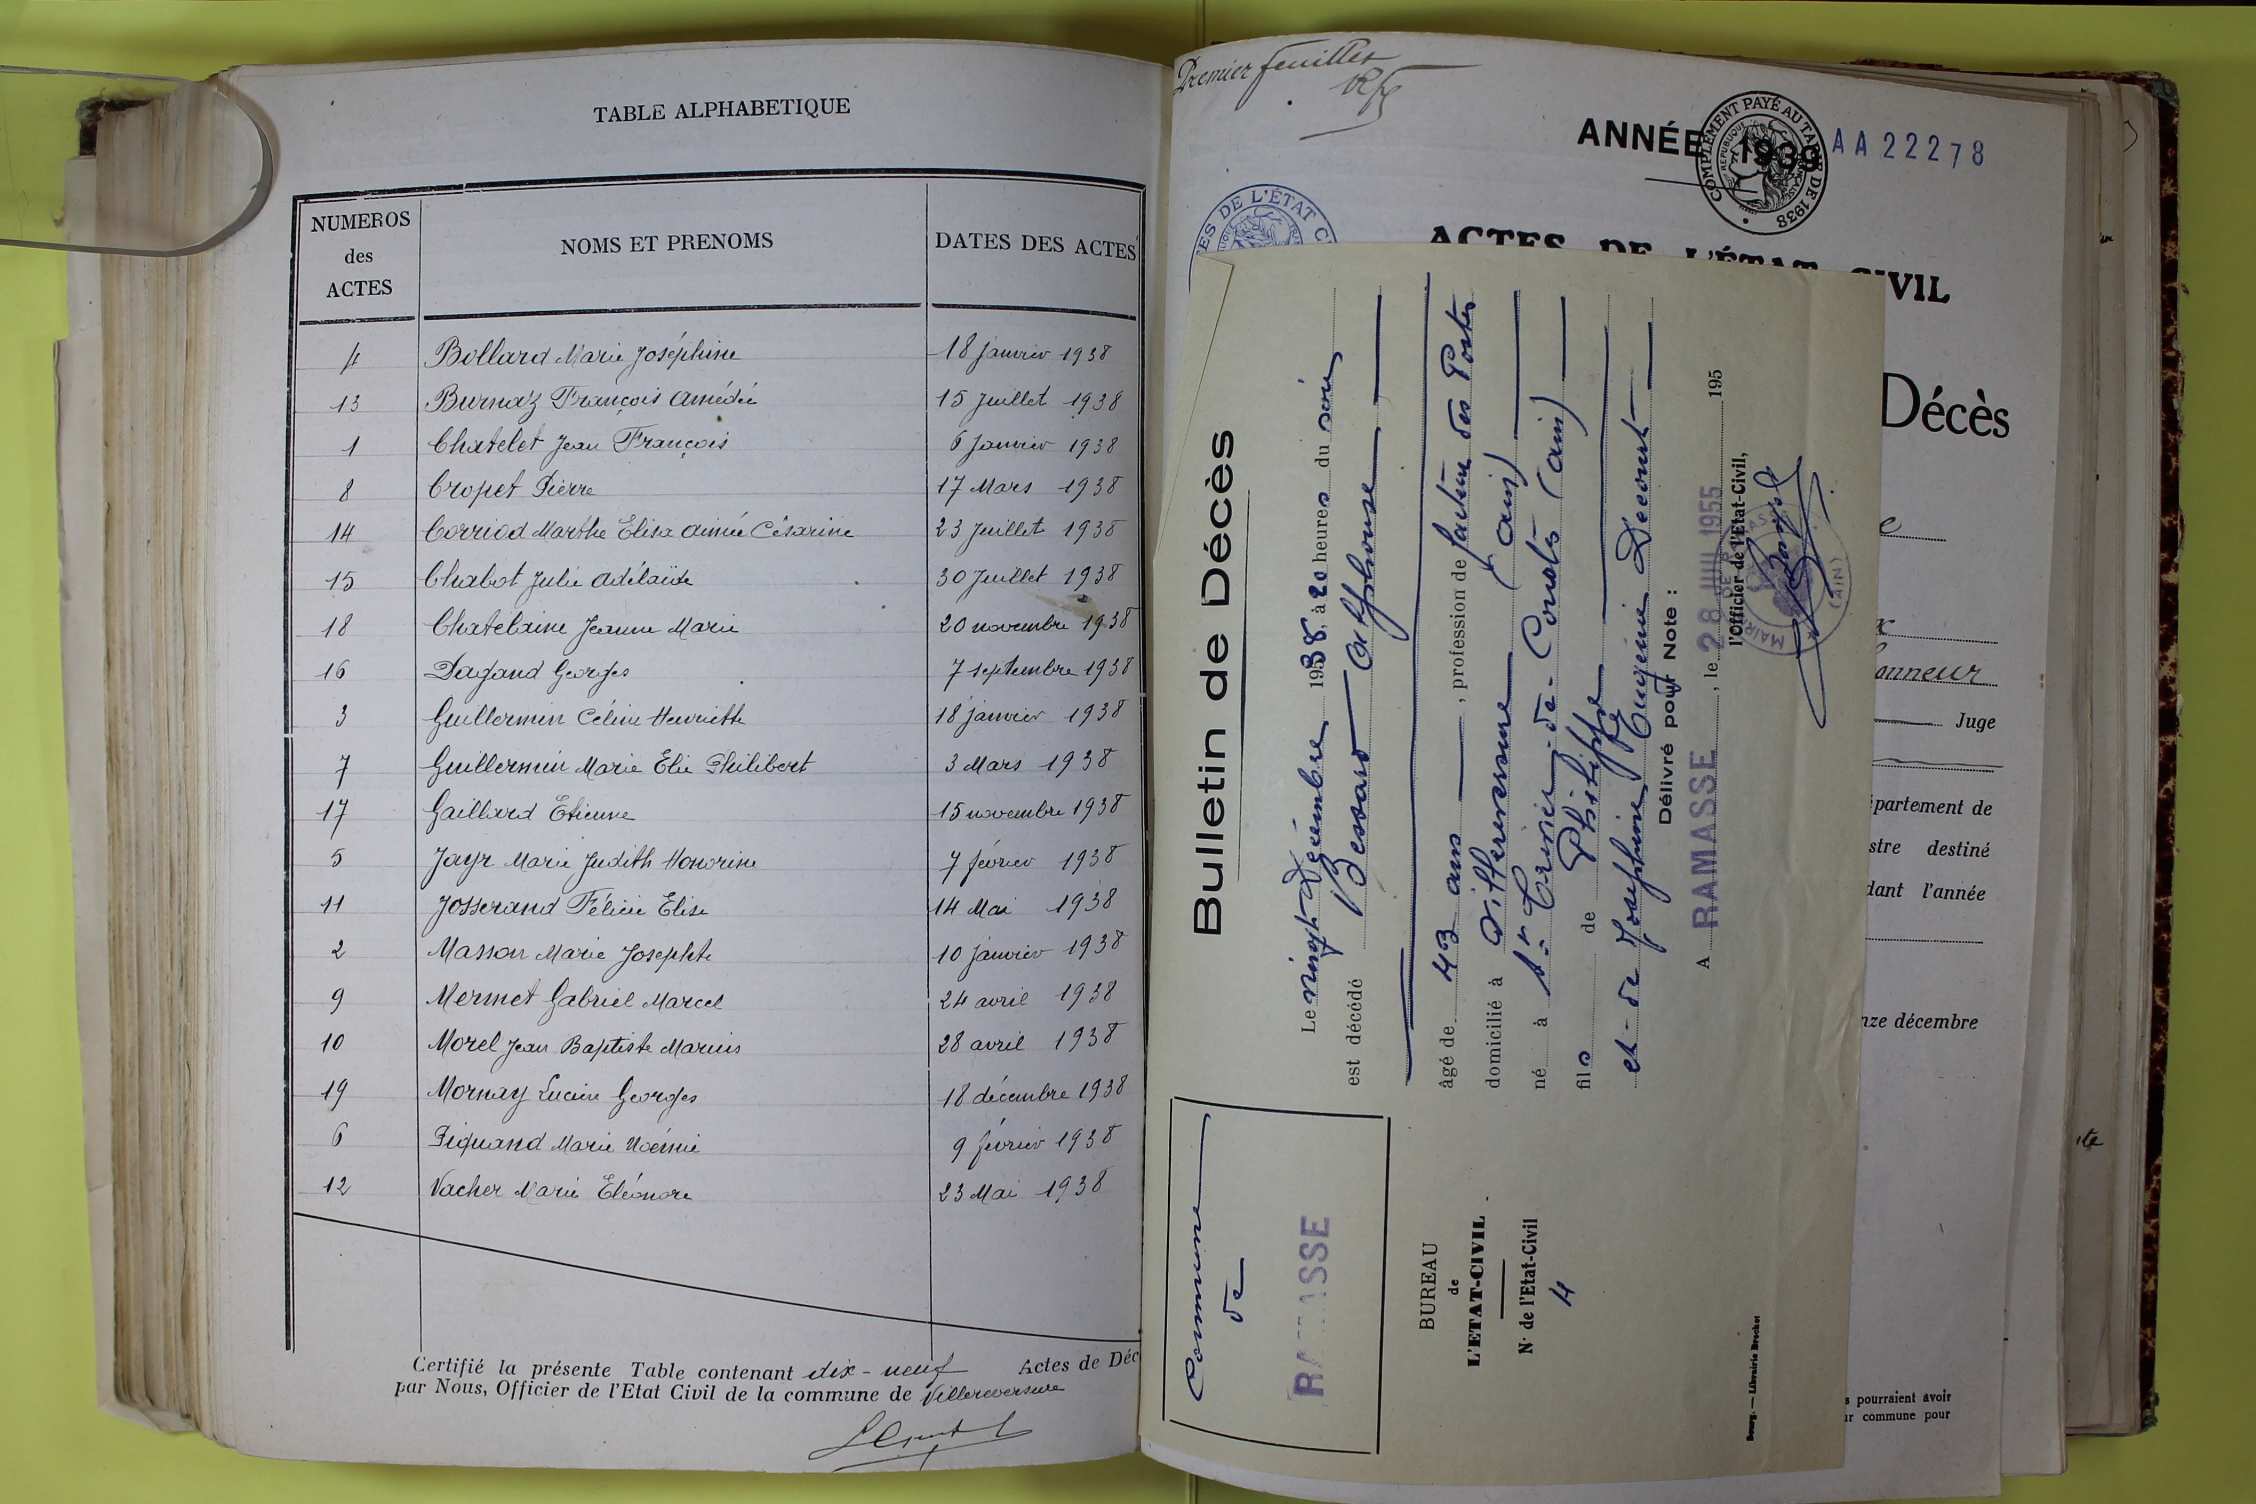 TABLE ALPHABETIQUE
NUMEROS des ACTES NOMS ET PRENOMS DATES DES ACTES
4 Bollard Marie Joséphine 18 janvier 1938
13 Burnaz François Amédée 15 Juillet 1938
1 Chatelet Jean François 6 Janvier 1938
8 Cropet Pierre 17 Mars 1938
14 Corriod Marthe Elisa Aimée Césarine 23 Juillet 1938
15 Chabot Julie Adélaïde 30 Juillet 1938
18 Chatelaine Jeanne Marie 20 novembre 1938
16 Dagand Georges 7 septembre 1938
3 Guillermin Céline Henriette 18 janvier 1938
7 Guillermin Marie Elie Philibert 3 Mars 1938
17 Gaillard Etienne 15 novembre 1938
5 Jayr Marie Judith Honorine 7 février 1938
11 Josserand Félicie Elise 14 Mai 1938
2 Masson Marie Josephte 10 janvier 1938
9 Mermet Gabriel Marcel 24 avril 1938
10 Morel Jean Baptiste Marius 28 avril 1938
19 Mornay Lucien Georges 18 décembre 1938
6 Piquand Marie Noémie 9 février 1938
12 Vacher Marie Eléonore 23 Mai 1938
Certifié la présente Table contenant dix-neuf Actes de Déc
par Nous, Officier de l'Etat Civil de la commune de Villereversure
Premier feuillet
ANNÉE 1939
COMPLÉMENT PAYÉ AU TARIF DE 1938
AA 22278
DE L'ÉTAT C
ACTES DE L'ÉTAT CIVIL
Décès
onneur
Juge
partement de
stre destiné
dant l'année
nze décembre
s pourraient avoir
ur commune pour
Commune
de
RAMASSE
BUREAU
de
L'ETAT-CIVIL
N° de l'Etat-Civil
4
Bourg. — Librairie Brochot
Bulletin de Décès
Le vingt Décembre 1938, à 20 heures du soir
est décédé Bessard Alphonse
âgé de 43 ans, profession de facteur des Postes
domicilié à Villereversure (Ain)
né à St Trivier-de-Courtes (Ain)
fils de Philippe
et de Joséphine Eugénie Decourt
Délivré pour Note :
A RAMASSE, le 28 JUIL 1955 195
l'Officier de l'Etat-Civil,
MAIRIE DE RAMASSE (AIN)